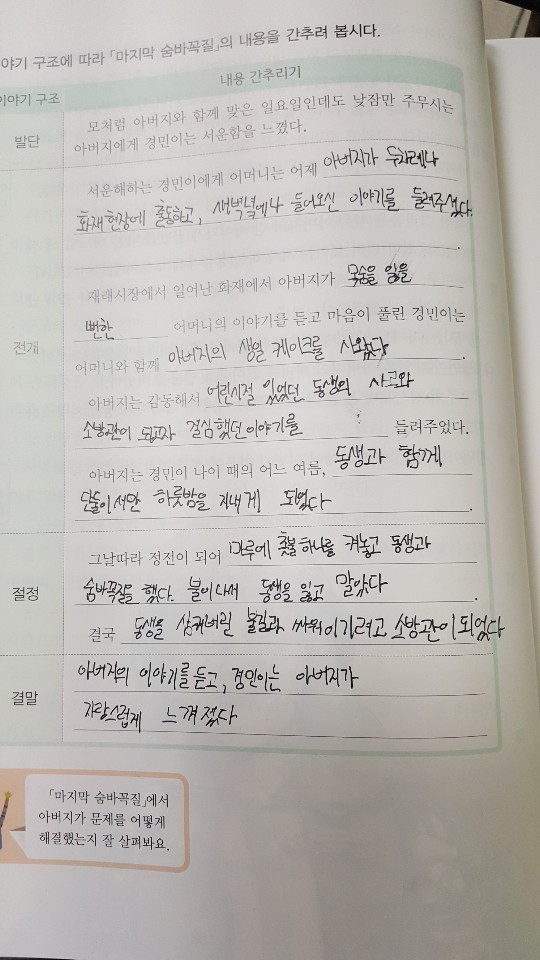 야기 구조에 따라 「마지막 숨바꼭질」의 내용을 간추려 봅시다.
이야기 구조
내용 간추리기
발단
모처럼 아버지와 함께 맞은 일요일인데도 낮잠만 주무시는
아버지에게 경민이는 서운함을 느꼈다.
전개
서운해하는 경민이에게 어머니는 어제 아버지가 두차례나
화재현장에 출동하고, 새벽녘에나 들어오신 이야기를 들려주셨다.
.
재래시장에서 일어난 화재에서 아버지가 목숨을 잃을
뻔한 어머니의 이야기를 듣고 마음이 풀린 경민이는
어머니와 함께 아버지의 생일 케이크를 사왔다.
아버지는 감동해서 어린시절 있었던 동생의 사고와
소방관이 되고자 결심했던이야기를 들려주었다.
아버지는 경민이 나이 때의 어느 여름, 동생과 함께,
단둘이서만 하룻밤을 지내게 되었다.
절정
그날따라 정전이 되어 마루에 촛불하나를 켜놓고 동생과
숨바꼭질을 했다. 불이나서 동생을 잃고 말았다.
결국 동생을 삼켜버릴 불길과 싸워이기려고 소방관이되었다
결말
아버지의 이야기를 듣고, 경민이는 아버지가
자랑스럽게 느껴졌다
「마지막 숨바꼭질」에서
아버지가 문제를 어떻게
해결했는지 잘 살펴봐요.